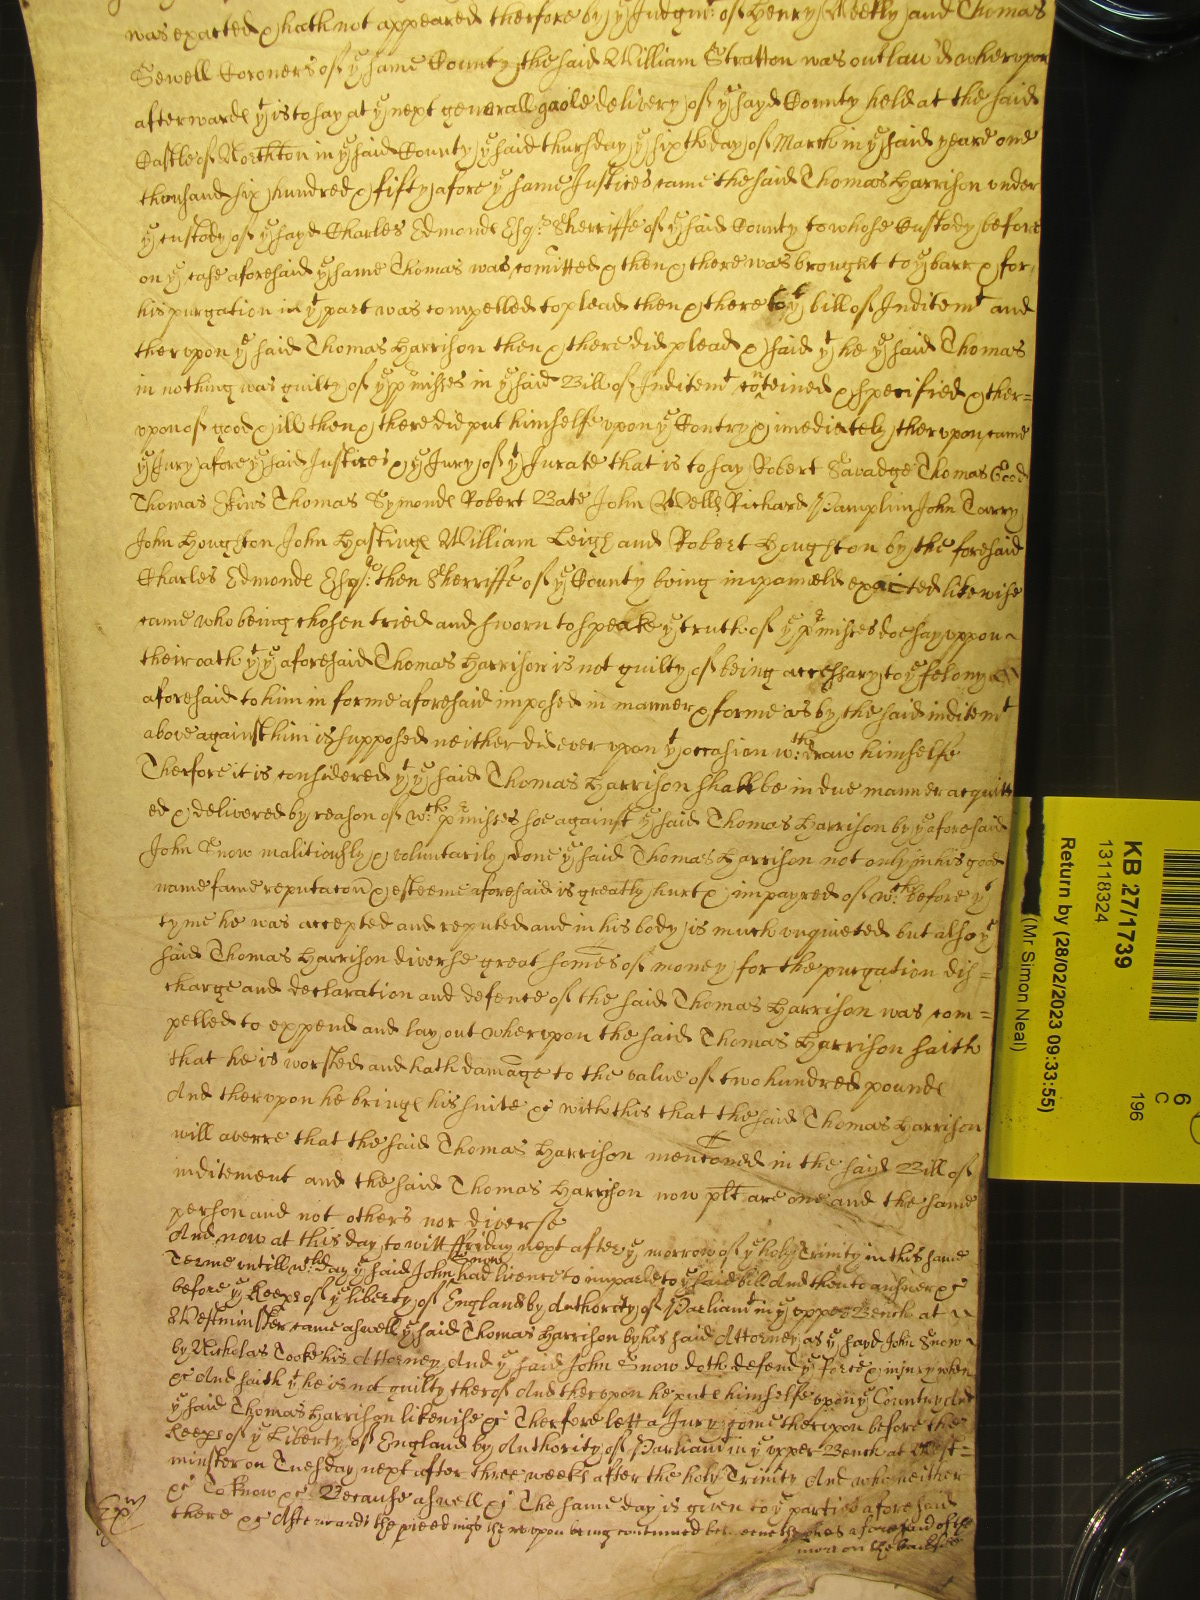 was exacted & hath not appeared therfore by yͤ Judgmᵗ of Henry Meekly and Thomas
Sewell Coroners of yͤ same County the said William Stratton was outlaw'd wherupon
afterwards yͭ is to say at yͤ next generall gaole delivery of yͤ sayd County held at the said
Castle of Northton in yͤ said County yͤ said thursday yͤ sixth day of March in yͤ said yeare one
thousand six hundred & fifty afore yͤ same Justices came the said Thomas Harrison under
yͤ custody of yͤ sayd Charles Edmonds Esqʳ Sherriffe of yͤ said County to whose Custody before
on yͤ case aforesaid yͤ same Thomas was comitted & then & there was brought to yͤ barr & for
his purgation in yͭ part was compelled to plead then & there to yͤ bill of Inditemᵗ and
therupon yͤ said Thomas Harrison then & there did plead & said yͭ he yͤ said Thomas
in nothing was guilty of yͤ pʳmisses in yͤ said Bill of Inditemᵗ conteined & specified & ther=
upon of good & ill then & there did put himselfe upon yͤ Contry & imediately therupon came
yͤ Jury afore yͤ said Justices & yͤ Jury of yͭ Jurate that is to say Robert Savadge Thomas Good
Thomas Ekins Thomas Symonds Robert Bate John Wells Richard Pamplin John Tarry
John Houghton John Hastings William Leigh and Robert Houghton by the foresaid
Charles Edmonds Esqʳ then Sherriffe of yͤ County being impaneld exacted likewise
came who being chosen tried and sworn to speake yͤ truth of yͤ pʳmisses doe say uppon
their oath yͭ yͤ aforesaid Thomas Harrison is not guilty of being accessary to yͤ felony
aforesaid to him in forme aforesaid imposed in manner & forme as by the said inditemᵗ
above against him is supposed neither did ever upon yͭ occasion wᵗʰdraw himselfe
Therfore it is considered yͭ yͤ said Thomas Harrison shall be in due manner acquitt
ed & delivered by reason of wᶜʰ pʳmisses soe against yͤ said Thomas Harrison by yͤ aforesaid
John Snow malitiously & voluntarily done yͤ said Thomas Harrison not only in his good
name fame reputacon & esteeme aforesaid is greatly hurt & impayred of wᶜʰ before yͭ
tyme he was accepted and reputed and in his body is much unquieted but also yͤ
said Thomas Harrison diverse great somes of money for the purgation dis=
charge and declaration and defence of the said Thomas Harrison was com=
pelled to expend and lay out wherupon the said Thomas Harrison saith
that he is worsted and hath damage to the value of two hundred pounds
And therupon he brings his suite &c with this that the said Thomas Harrison
will averre that the said Thomas Harrison mentioned in the said Bill of
inditement and the said Thomas Harrison now plt are one and the same
person and not others nor diverse
And now at this day to witt ffriday next after yͤ morrow of yͤ holy Trinity in this same
Terme untill wᶜʰ day yͤ said John Snow had licence to imparle to yͤ said bill And then to answer &c
before yͤ Keeps of yͤ liberty of England by Authority of Parliamᵗ in yͤ upper Bench at
Westminster came aswell yͤ said Thomas Harrison by his said Attorney as yͤ sayd John Snow
by Nicholas Cooke his Attorney And yͤ said John Snow doth defend yͤ force & injury when
&c And saith yͭ he is not guilty therof And therupon he puts himselfe upon yͤ Country And
yͤ said Thomas Harrison likewise &c Therfore lett a Jury come therupon before the
Keeps of yͤ Liberty of England by Authority of Parliam in yͤ upper Bench at West=
minster on Tuesday next after three weeks after the holy Trinity And who neither
&c To know &c Because aswell &c The same day is given to yͤ parties aforesaid
there &c Afterwards the pceedings therupon being continued betweene the pties aforesaid of the
more on the backside
KB 27/1739
13118324
Return by (28/02/2023 09:33:55)
(Mr Simon Neal)
6
C
196